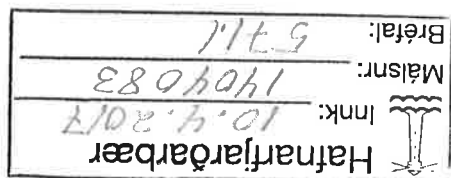 Hafnarfjarðarbær
Innk: 10.4.2017
Málsnr: 1404083
Bréfal: 571.1